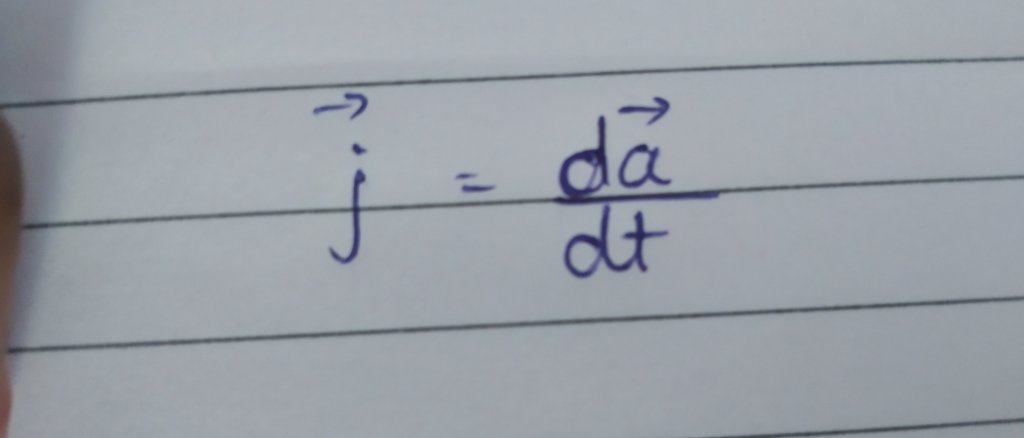 $\vec{j} = \frac{d\vec{a}}{dt}$